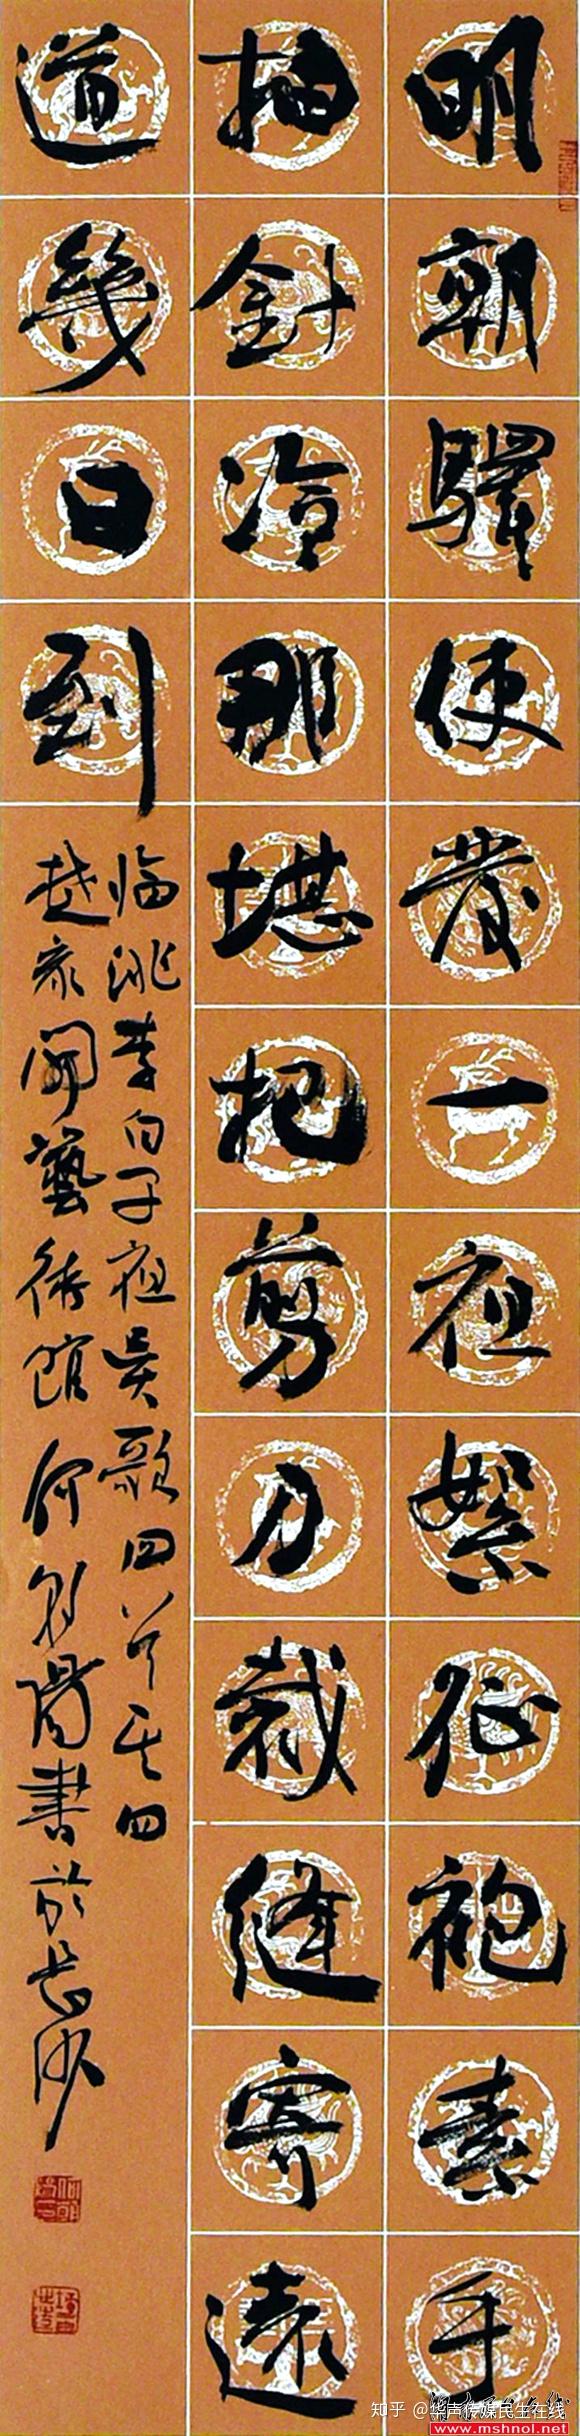 明朝驛使發一夜絮征袍素手
抽針冷那堪把剪刀裁縫寄遠
道幾日到
临洮李白子夜吳歌四首其四
藝術館何陽書於長沙
知乎 @华声传媒民生在线
www.mshnol.net